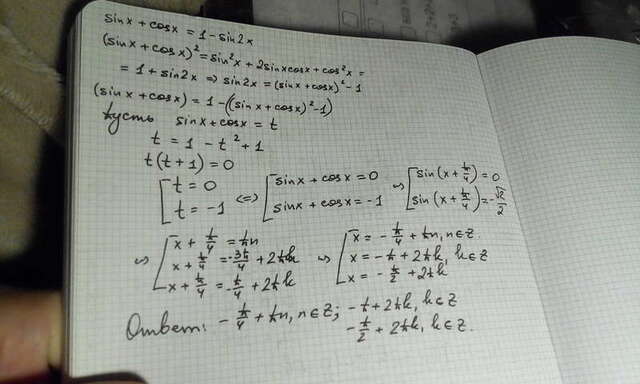 sinx + cosx = 1 - sin2x
(sinx + cosx)² = sin²x + 2sinxcosx + cos²x =
= 1 + sin2x ⇒ sin2x = (sinx + cosx)² - 1
(sinx + cosx) = 1 - ((sinx + cosx)² - 1)
Пусть sinx + cosx = t
t = 1 - t² + 1
t(t + 1) = 0
[ t = 0 <=> [ sinx + cosx = 0 ⇔ [ sin(x + π/4) = 0
t = -1 sinx + cosx = -1 sin(x + π/4) = -√2/2
⇔ [ x + π/4 = πn ⇔ [ x = -π/4 + πn, n∈Z.
x + π/4 = -3π/4 + 2πk x = -π + 2πk, k∈Z
x + π/4 = -π/4 + 2πk x = -π/2 + 2πk
Ответ: -π/4 + πn, n∈Z; -π + 2πk, k∈Z
-π/2 + 2πk, k∈Z.